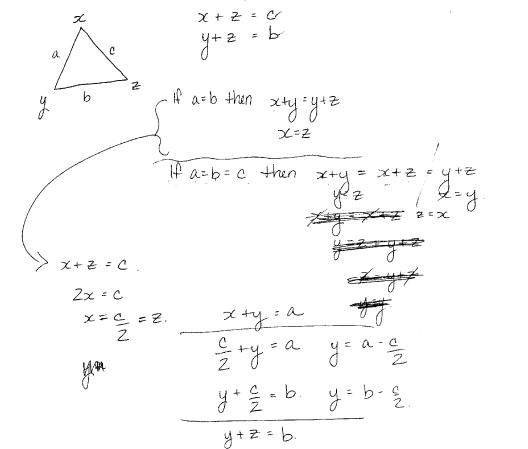 x
a c
y b z
x + z = c
y + z = b
If a=b then x+y = y+z
x = z
If a=b=c then x+y = x+z = y+z
y = z x = y
x+y = x+z z = x
x + z = c.
2x = c
x = c/2 = z.
x+y = a
c/2 + y = a y = a - c/2
y + c/2 = b. y = b - c/2.
y+z = b.